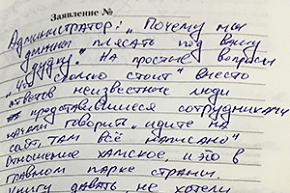 Заявление №
Администратор: „Почему мы
должны плясать под вашу
дудку". На простые вопросы
„что сколько стоит" вместо
ответов неизвестные люди
не представившиеся сотрудниками
начали говорить „идите на
сайт, там всё написано"
Отношение хамское, и это в
главном парке страны.
книгу давать не хотели